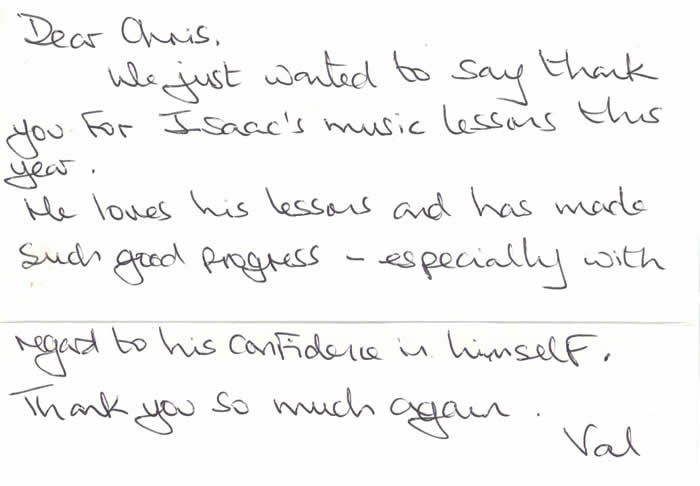 Dear Chris,
We just wanted to say thank
you for Isaac's music lessons this
year.
He loves his lessons and has made
such good progress - especially with
regard to his confidence in himself.
Thank you so much again.
Val